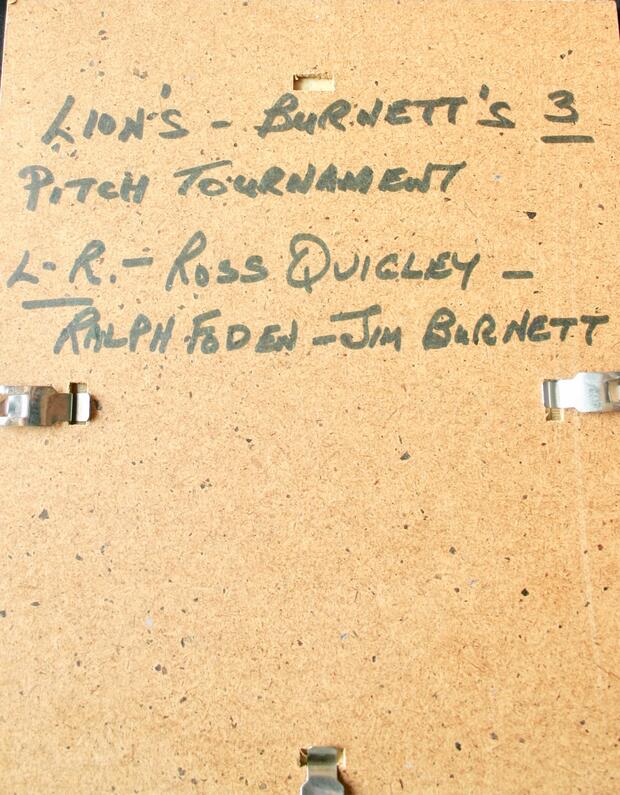 LION'S - BURNETT'S 3
PITCH TOURNAMENT
L-R.- ROSS QUIGLEY -
RALPH FODEN - JIM BURNETT